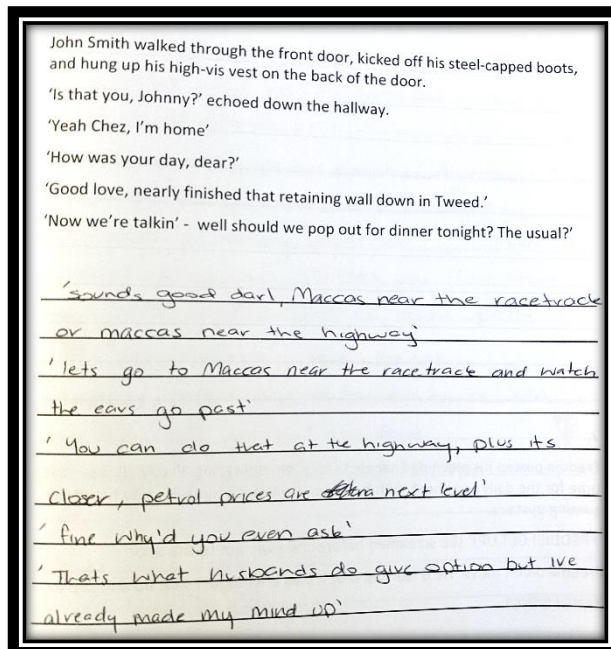 John Smith walked through the front door, kicked off his steel-capped boots,
and hung up his high-vis vest on the back of the door.
'Is that you, Johnny?' echoed down the hallway.
'Yeah Chez, I'm home'
'How was your day, dear?'
'Good love, nearly finished that retaining wall down in Tweed.'
'Now we're talkin' - well should we pop out for dinner tonight? The usual?'
'sounds good darl, Maccas near the racetrack
or maccas near the highway'
'lets go to Maccas near the racetrack and watch
the cars go past'
'You can do that at the highway, plus its
closer, petrol prices are next level'
'fine why'd you even ask'
'Thats what husbands do give option but ive
already made my mind up'